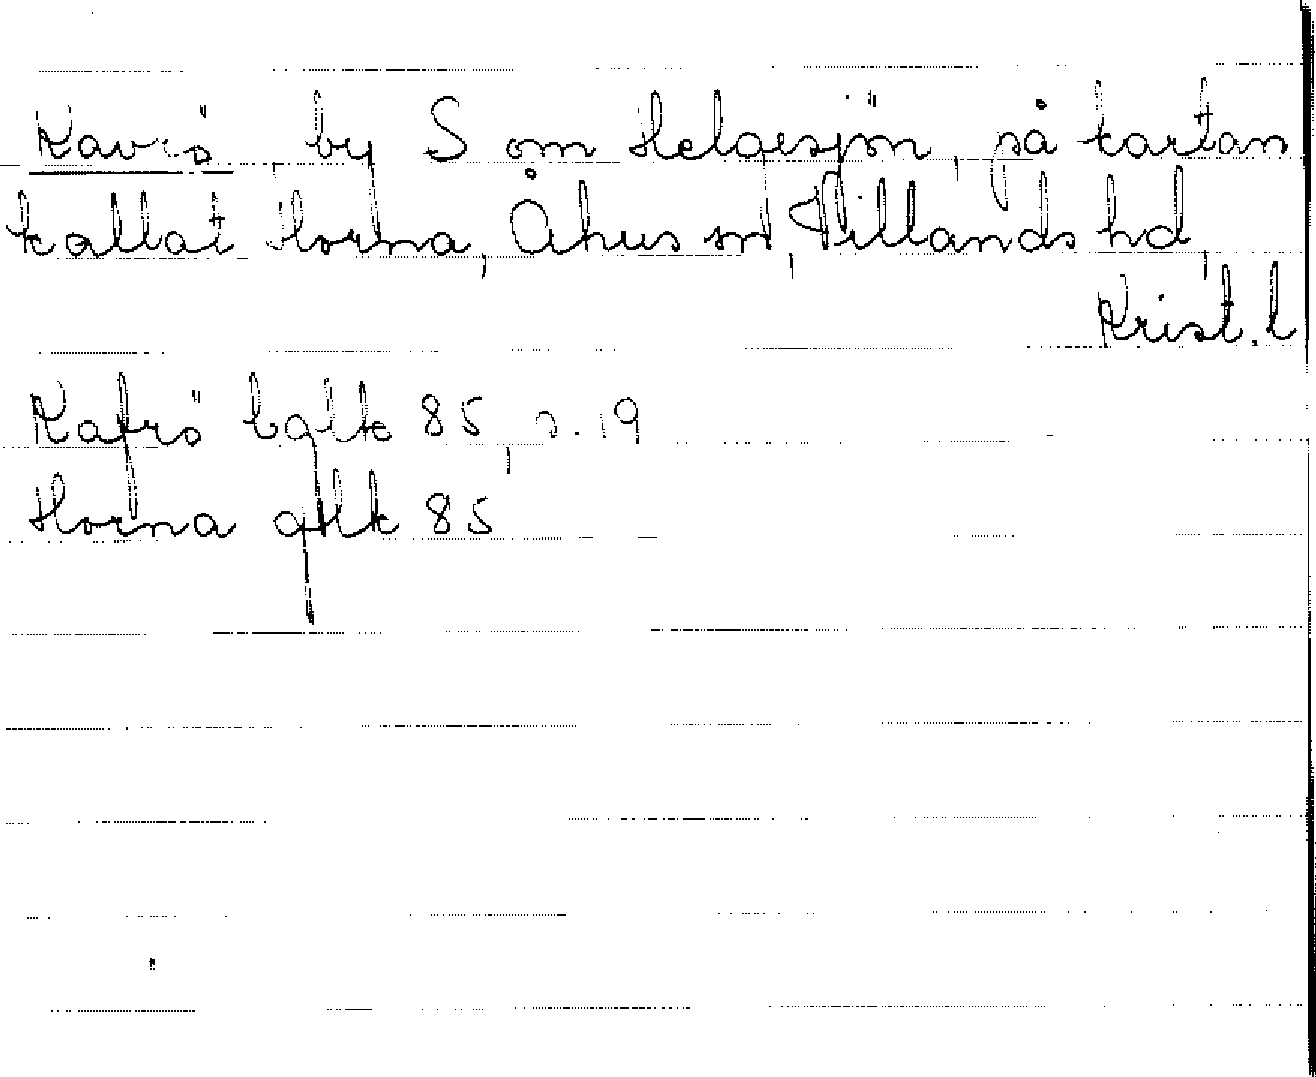 Kavrö, by S om Helgesjön, på kartan
kallat Horna, Åhus sn, Villands hd,
Krist. l
Kafrö bglk 85, s. 19
Horna gtlk 85